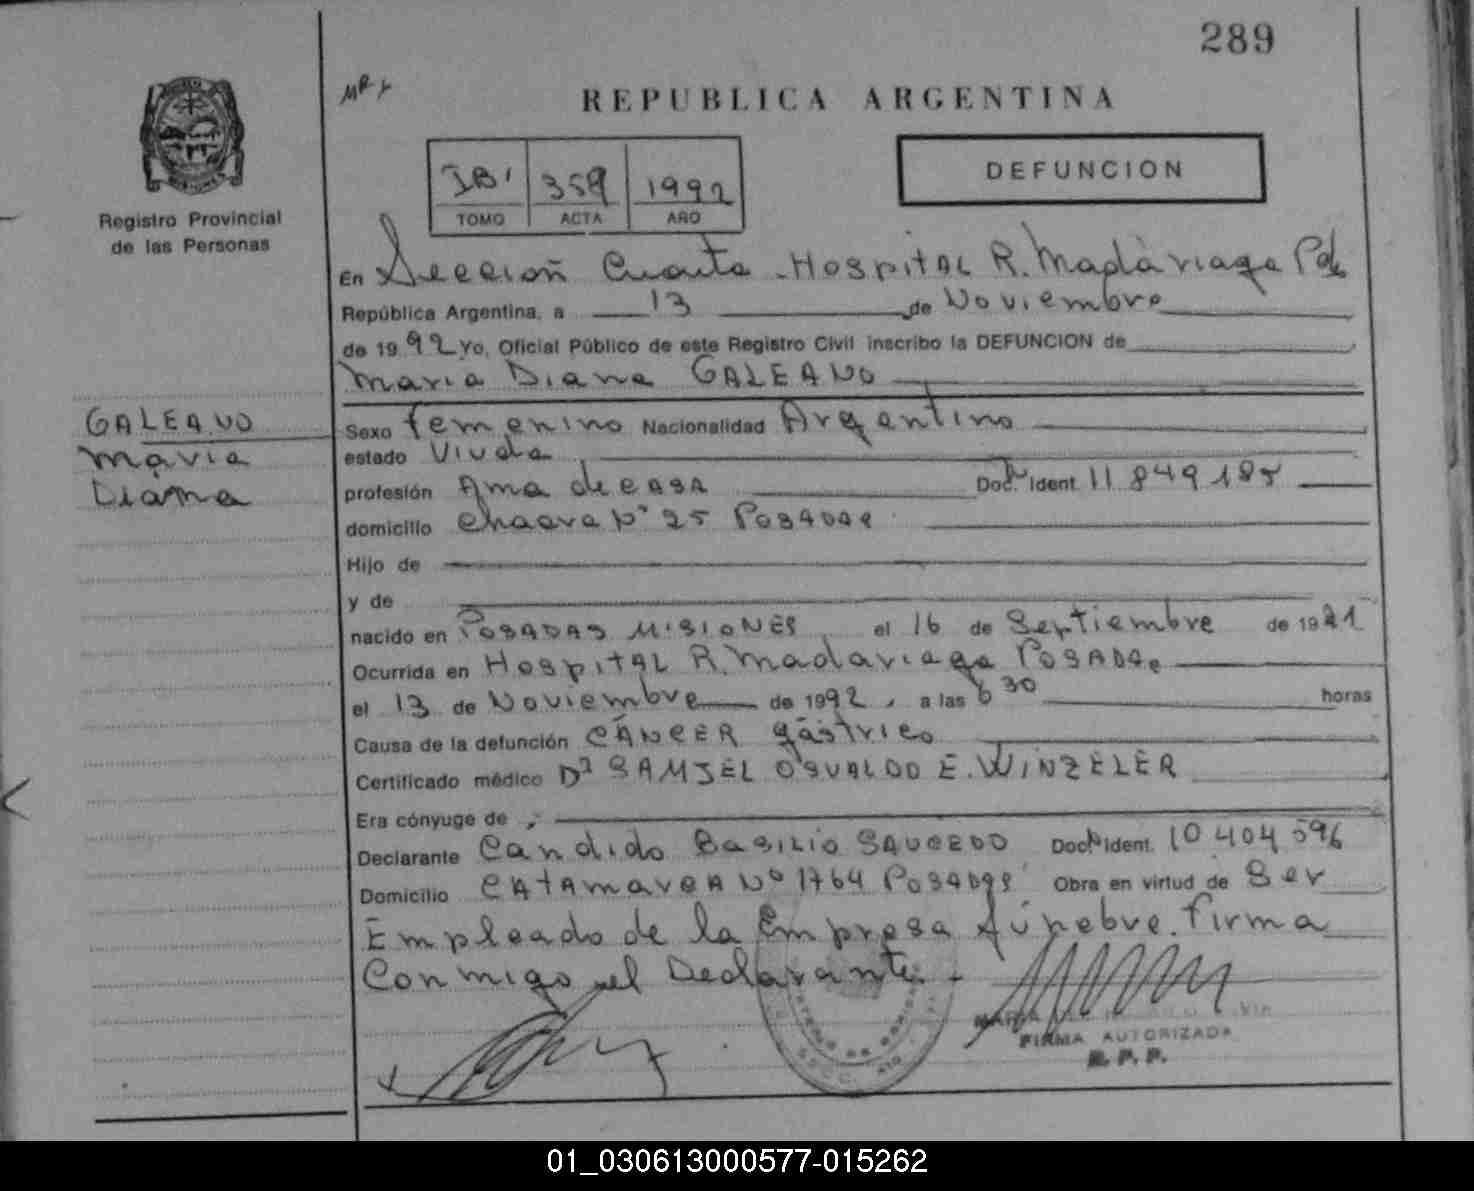 289
REPUBLICA ARGENTINA
Registro Provincial
de las Personas
359 1992
TOMO ACTA AÑO
DEFUNCION
En Sección Cuarta - Hospital R. Madariaga Pdas
República Argentina, a 13 de Noviembre
de 1992 Yo, Oficial Público de este Registro Civil inscribo la DEFUNCION de
Maria Diana GALEANO
GALEANO
Maria
Diana
Sexo femenino Nacionalidad Argentino
estado Viuda
profesión Ama de casa Doc. Ident. 11 849 185
domicilio chacra Nº 25 Posadas
Hijo de
y de
nacido en Posadas Misiones, el 16 de Septiembre de 1921
Ocurrida en Hospital R. Madariaga Posadas
el 13 de Noviembre de 1992, a las 6 30 horas
Causa de la defunción CÁNCER gástrico
Certificado médico Dr SAMUEL OSVALDO E. WINZELER
Era cónyuge de
Declarante Candido Basilio SAUCEDO Doc. Ident. 10 404 596
Domicilio Catamarca Nº 1764 Posadas Obra en virtud de Ser
Empleado de la Empresa fúnebre. firma
Conmigo el Declarante. -
FIRMA AUTORIZADA
R. P. P.
01_030613000577-015262